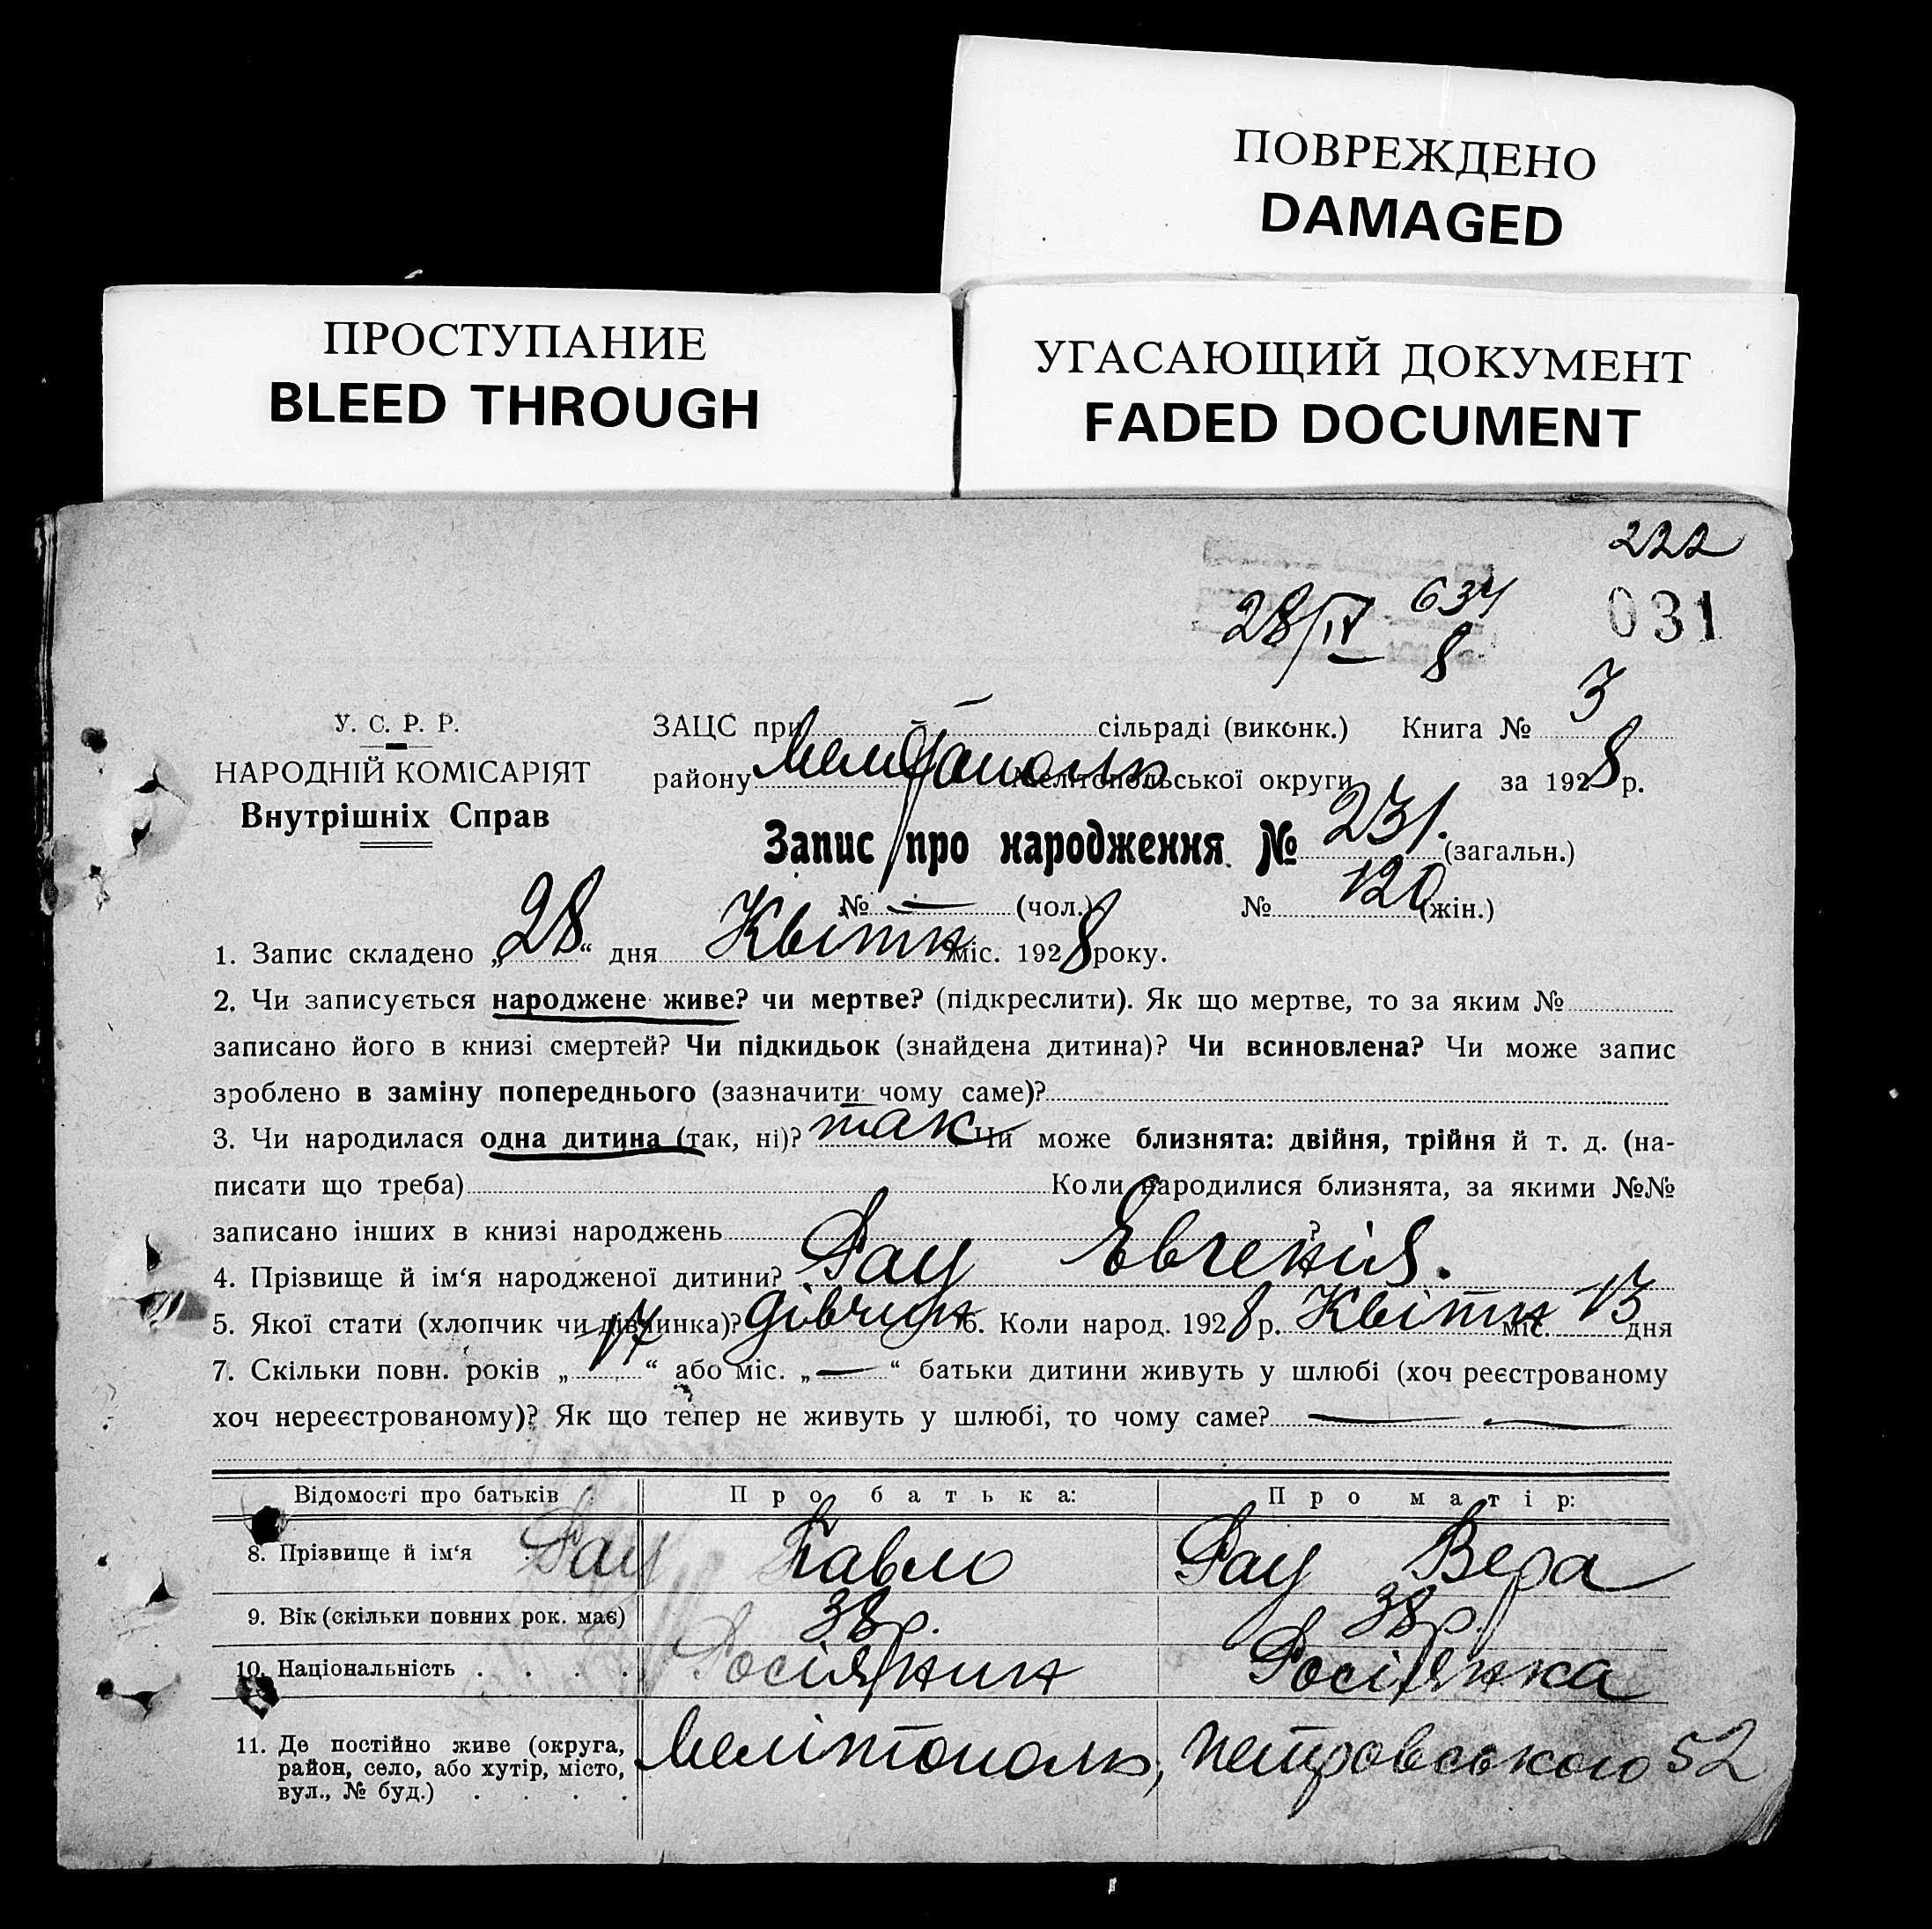 ПОВРЕЖДЕНО
DAMAGED
ПРОСТУПАНИЕ
BLEED THROUGH
УГАСАЮЩИЙ ДОКУМЕНТ
FADED DOCUMENT
222
28/IV 634
8
031
У. С. Р. Р.
НАРОДНІЙ КОМІСАРІЯТ
Внутрішніх Справ
ЗАЦС при сільраді (виконк.) Книга № 3
району Мелітополь Мелітопольської округи за 1928 р.
Запис про народження № 231. (загальн.)
№ — (чол.) № 120 (жін.)
1. Запис складено „28“ дня Квітн міс. 1928 року.
2. Чи записується народжене живе? чи мертве? (підкреслити). Як що мертве, то за яким №
записано його в книзі смертей? Чи підкидьок (знайдена дитина)? Чи всиновлена? Чи може запис
зроблено в заміну попереднього (зазначити чому саме)?
3. Чи народилася одна дитина (так, ні)? так Чи може близнята: двійня, трійня й т. д. (на-
писати що треба) Коли народилися близнята, за якими №№
записано інших в книзі народжень ?
4. Прізвище й ім‘я народженої дитини? Рау Евгенія.
5. Якої стати (хлопчик чи дівчинка)? дівчин 6. Коли народ. 1928 р. Квітн міс. 13 дня
7. Скільки повн. років „17“ або міс. „—“ батьки дитини живуть у шлюбі (хоч реєстрованому
хоч нереєстрованому)? Як що тепер не живуть у шлюбі, то чому саме? — —
Відомості про батьків Про батька: Про матір:
8. Прізвище й ім‘я Рау Павло Рау Вера
9. Вік (скільки повних рок. має) 38 р. 38 р.
10. Національність . . . . Росіянин Росіянка
11. Де постійно живе (округа,
район, село, або хутір, місто,
вул., № буд.) . . . .
Мелітополь, Петровського 52